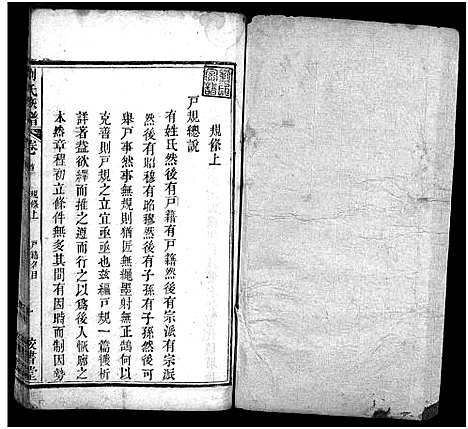 規條上
戶規總說
有姓氏然後有戶藉有戶藉然後有宗派有宗派
然後有昭穆有昭穆然後有子孫有子孫然後可
舉戶事然事無規則猶匠無繩墨射無正鵠何以
克善則戶規之立宜亟亟也兹編戶規一篇僕析
詳著益欲繹而推之遵而行之以為後人恢廓之
本然章程初立條件無多其間有因時制因勢
氏族譜
卷
規條上
戶藉
目
一
校書堂